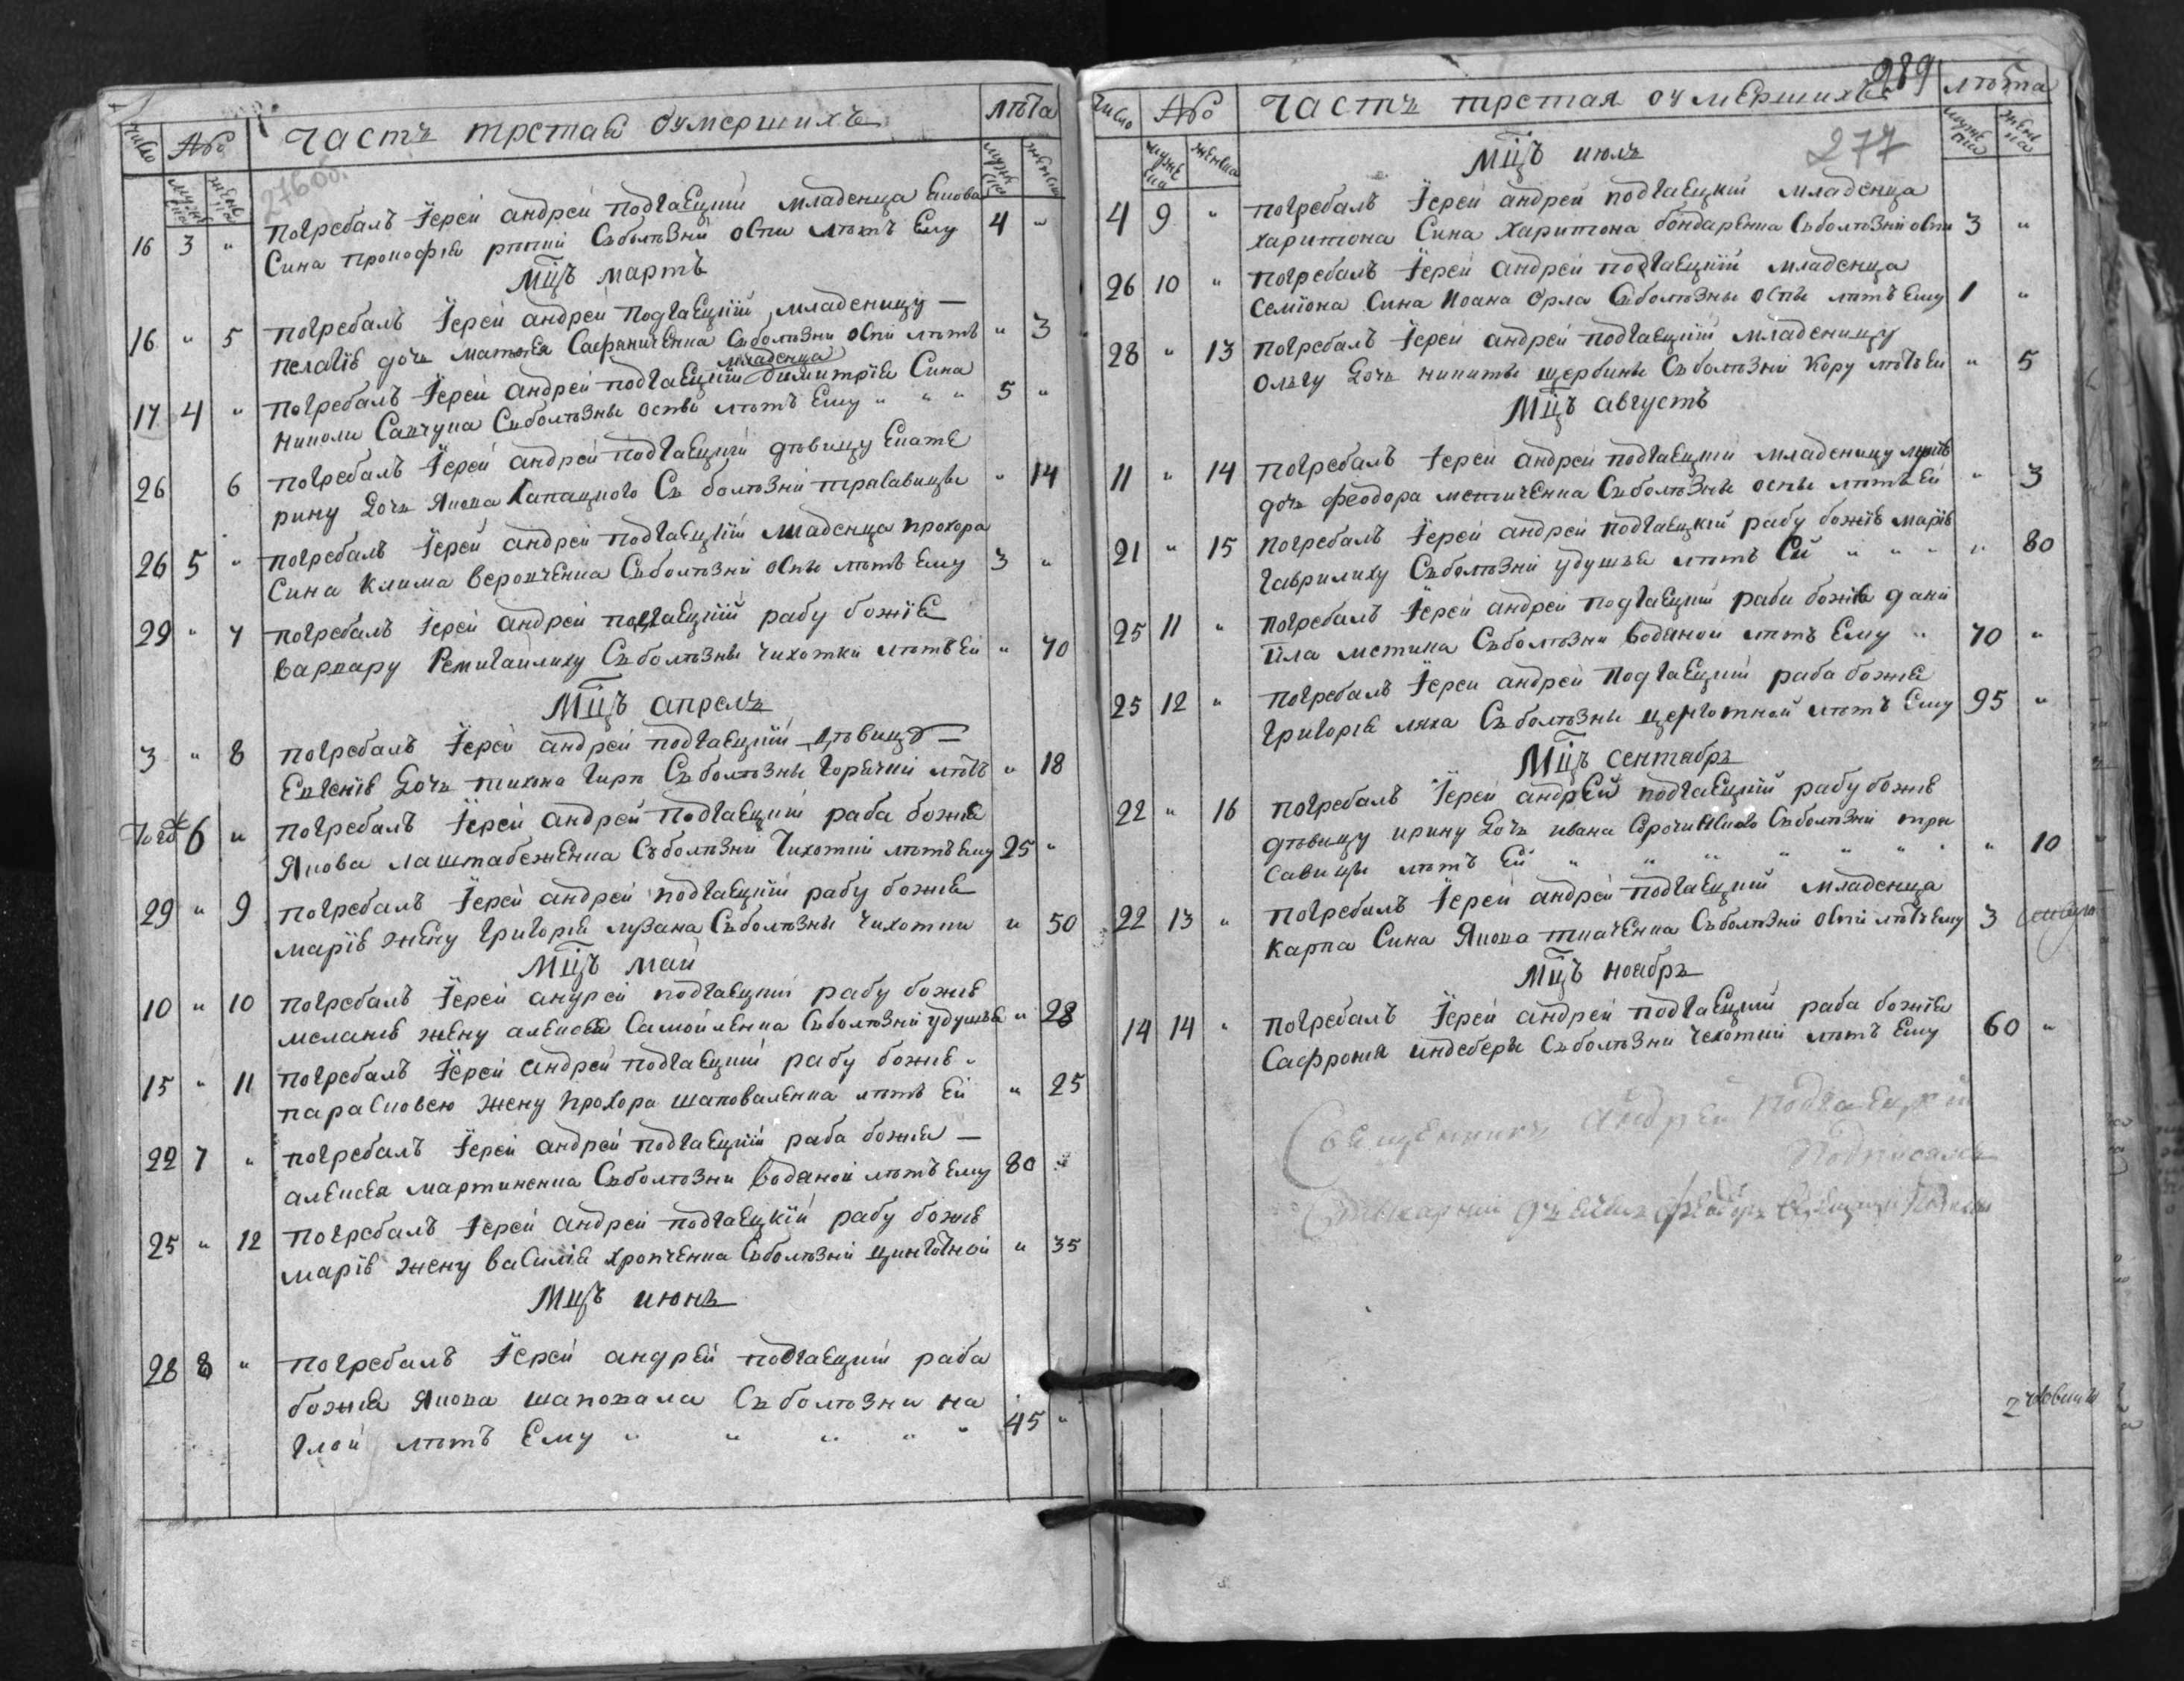 Число № Часть третая оумершихъ лѣта
мужеска женска мужеска женска
276об.
16 3 " погребалъ Іерей андрей подгаецкій младенца Якова
Сина прокофія рѣпки Съболѣзни оспи лѣтъ Ему 4 "
Мцъ мартъ
16 " 5 погребалъ Іерей андрей подгаецкій младеницу —
пелагію дочь матѳея Сафрониченка Съболѣзни оспи лѣтъ " 3
младенца
17 4 " погребалъ Іерей андрей подгаецкій димитрія Сина
николи Савчука Съболѣзны оспы лѣтъ Ему " " " 5 "
26 6 погребалъ Іерей андрей подгаецкій дѣвицу Екате
рину Дочь Якова Лапацкого Съ болѣзни трасавицы " 14
26 5 " погребалъ Іерей андрей подгаецкій младенца прохора
Сина клима веропченка Съболѣзни оспы лѣтъ Ему 3 "
29 " 7 погребалъ Іерей андрей подгаецкій рабу божію
варвару Ремигайлиху Съболѣзны чихотки лѣтъ Ей " 70
Мцъ апрель
3 " 8 погребалъ Іерей андрей подгаецкій дѣвицу —
Евгенію Дочь тихона гирп Съболѣзны горячки лѣтъ " 18
6 " погребалъ Іерей андрей подгаецкій раба божія
Якова лаштабеженка Съболѣзни Чихотки лѣтъ Ему 25 "
29 " 9 погребалъ Іерей андрей подгаецкій рабу божію
марію жену григорія лузана Съболѣзны чихотки " 50
Мцъ май
10 " 10 погребалъ Іерей андрей подгаецкій рабу божію
меланію жену алексея Самойленка Съболѣзни удушья " 28
15 " 11 погребалъ Іерей андрей подгаецкій рабу божію "
парасковею жену прохора шаповаленка лѣтъ Ей " 25
22 7 " погребалъ Іерей андрей подгаецкій раба божія —
алексея мартиненка Съболѣзни водяной лѣтъ Ему 80 "
25 " 12 погребалъ Іерей андрей подгаецкій рабу божію
марію жену василія хропченка Съболѣзни цинготной " 35
Мцъ июнь
28 8 " погребалъ Іерей андрей подгаецкій раба
божія Якова шаповала Съ болѣзни на
глой лѣтъ Ему " " " " " 45 "
289
Число № Часть третая оумершихъ лѣта
мужеска женска мужеска женска
Мцъ июль 277
4 9 " погребалъ Іерей андрей подгаецкій младенца
харитона Сина Харитона бондаренка Съболѣзни оспи 3 "
26 10 " погребалъ Іерей андрей подгаецкій младенца
Семіона Сина Иоана Орла Съболѣзны оспы лѣтъ Ему 1 "
28 " 13 погребалъ Іерей андрей подгаецкій младеницу
Ольгу Дочь никиты щербины Съболѣзни Кору лѣтъ Ей " 5
Мцъ августъ
11 " 14 погребалъ Іерей андрей подгаецкій младеницу марію
дочь феодора метиченка Съболѣзны оспы лѣтъ Ей " 3
21 " 15 погребалъ Іерей андрей подгаецкій рабу божію марію
гаврилиху Съболѣзни удушья лѣтъ Ей " " " " 80
25 11 " погребалъ Іерей андрей подгаецкій раба божія дани
ила метика Съболѣзни водяной лѣтъ Ему " 70 "
25 12 " погребалъ Іерей андрей подгаецкій раба божія
григорія ляха Съ болѣзны цынготной лѣтъ Ему 95 "
Мцъ сентябрь
22 " 16 погребалъ Іерей андрей подгаецкій рабу божію
дѣвицу ирину Дочь ивана Сорочинского Съболѣзни тря
савицы лѣтъ Ей " " " " " " " 10
22 13 " погребалъ Іерей андрей подгаецкій младенца
карпа Сина Якова ткаченка Съболѣзни оспи лѣтъ Ему 3
Мцъ ноябрь
14 14 " погребалъ Іерей андрей подгаецкій раба божія
Сафронія индебери Съболѣзни чехотки лѣтъ Ему 60 "
Священникъ андрей подгаецкій
подписался